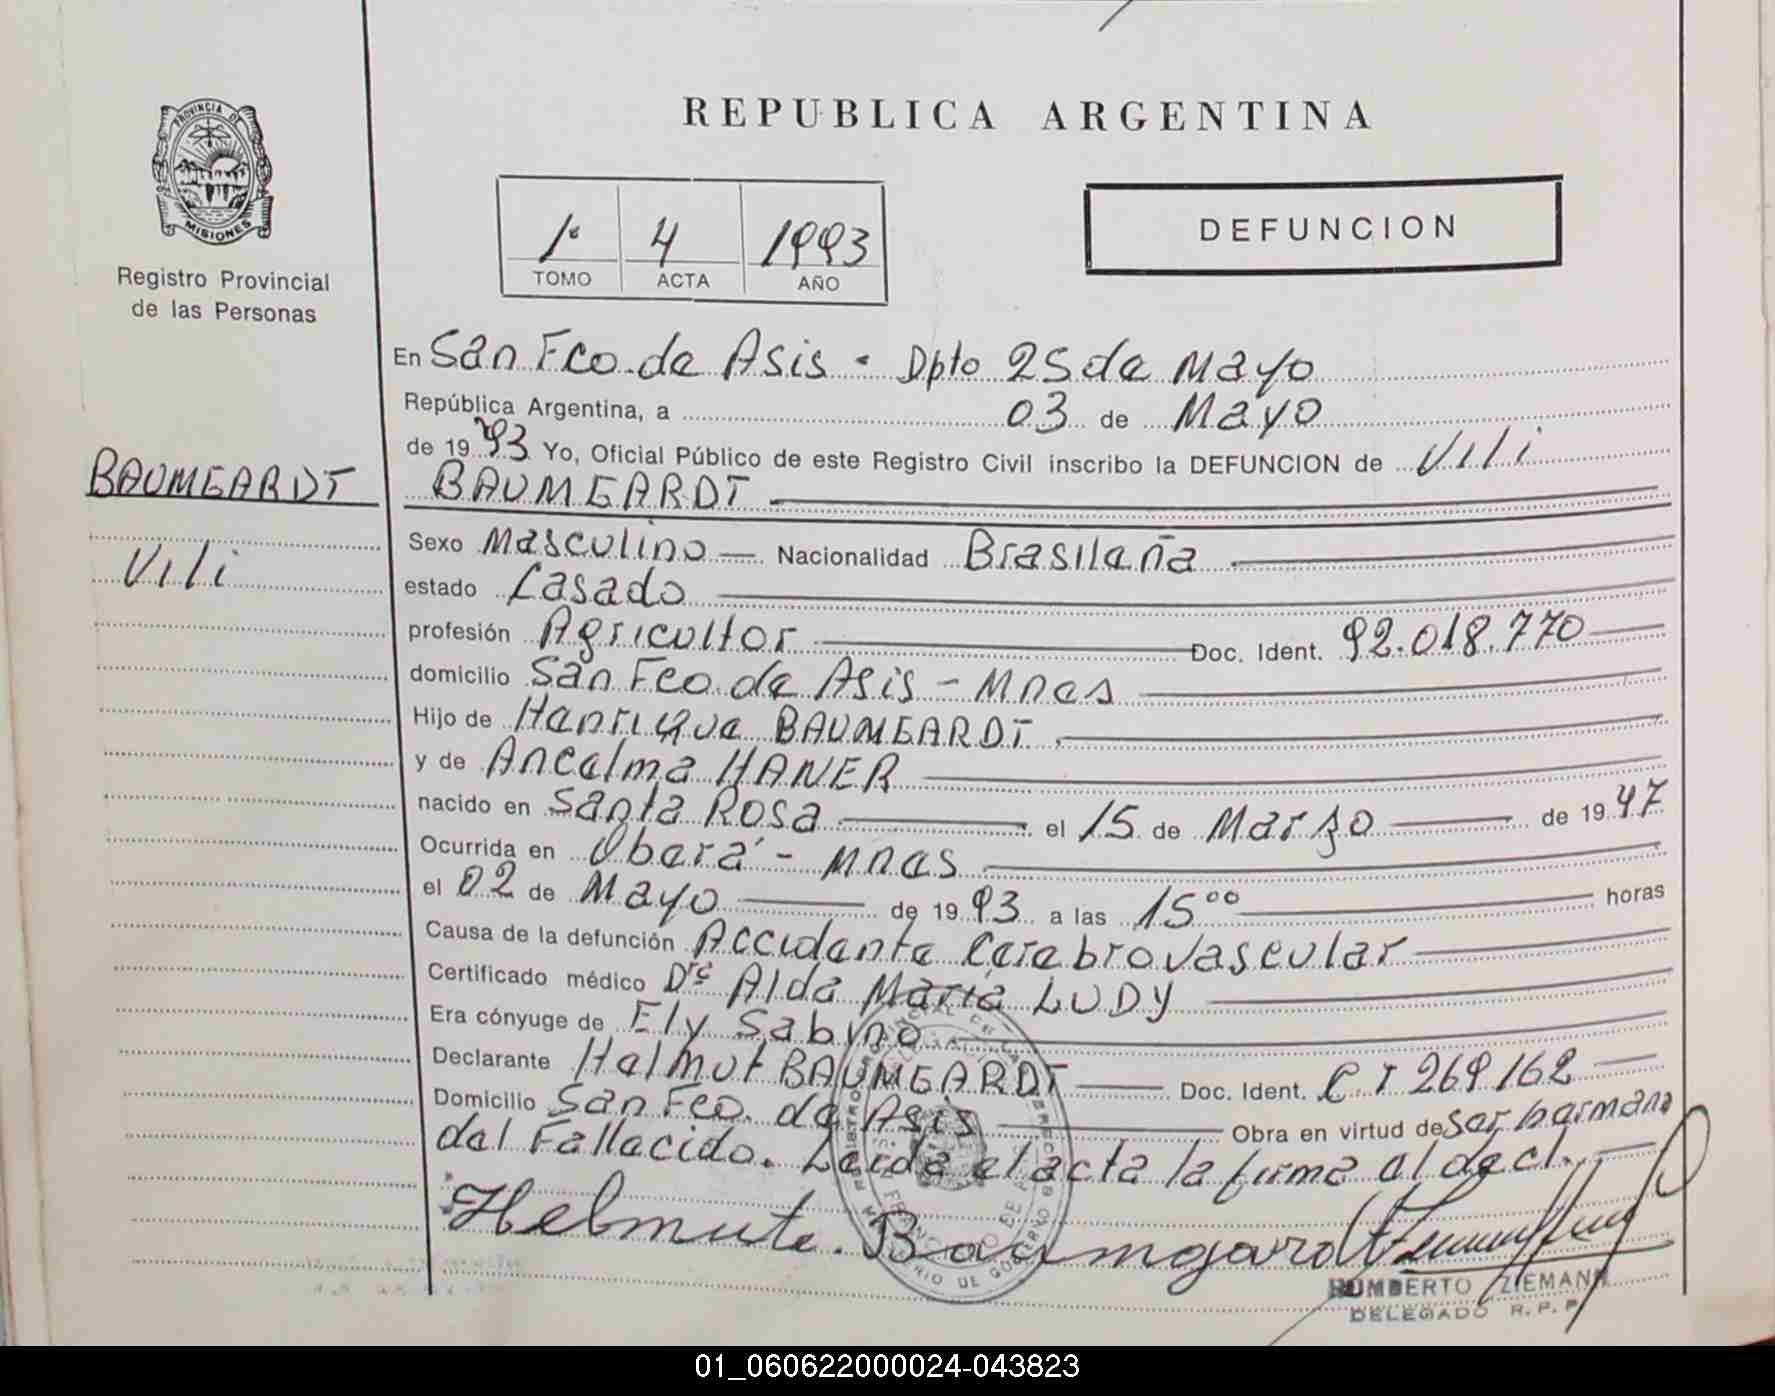 PROVINCIA DE
MISIONES
Registro Provincial
de las Personas
BAUMGARDT
Vili
REPUBLICA ARGENTINA
1º 4 1993
TOMO ACTA AÑO
DEFUNCION
En San Fco. de Asis - Dpto 25 de Mayo
República Argentina, a 03 de Mayo
de 1993 Yo, Oficial Público de este Registro Civil inscribo la DEFUNCION de Vili
BAUMGARDT
Sexo Masculino Nacionalidad Brasileña
estado Casado
profesión Agricultor Doc. Ident. 92.018.770
domicilio San Fco. de Asis - Mnes
Hijo de Henrique BAUMGARDT
y de Ancelma HANER
nacido en Santa Rosa el 15 de Marzo de 1947
Ocurrida en Oberá - Mnes
el 02 de Mayo de 1993 a las 15⁰⁰ horas
Causa de la defunción Accidente Cerebrovascular
Certificado médico Drª Alda Maria LUDY
Era cónyuge de Ely Sabino
Declarante Helmut BAUMGARDT Doc. Ident. C I 269162
Domicilio San Fco. de Asis Obra en virtud de ser hermano
del Fallecido. Leida el acta la firma el decl.
Helmute. Baumgardt
HUMBERTO ZIEMANN
DELEGADO R.P.P.
01_060622000024-043823